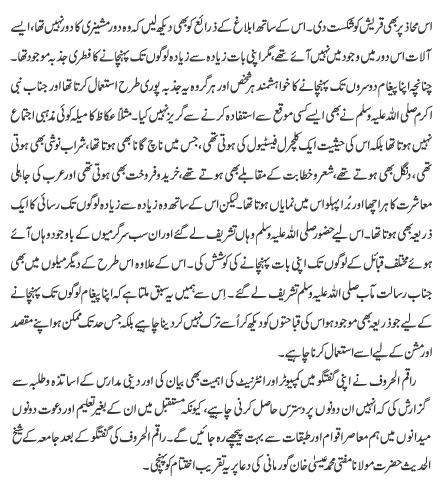 اس محاذ پر بھی قریش کو شکست دی۔ اس کے ساتھ ابلاغ کے ذرائع کو بھی دیکھ لیں کہ وہ دور مشینری کا دور نہیں تھا، ایسے
آلات اس دور میں وجود میں نہیں آئے تھے، مگر اپنی بات زیادہ سے زیادہ لوگوں تک پہنچانے کا فطری جذبہ موجود تھا۔
چنانچہ اپنا پیغام دوسروں تک پہنچانے کا خواہشمند ہر شخص اور ہر گروہ یہ جذبہ پوری طرح استعمال کرتا تھا اور جناب نبی
اکرم صلی اللہ علیہ وسلم نے بھی ایسے کسی موقع سے استفادہ کرنے سے گریز نہیں کیا۔ مثلاً عکاظ کا میلہ کوئی مذہبی اجتماع
نہیں ہوتا تھا بلکہ اس کی حیثیت ایک کلچرل فیسٹیول کی ہوتی تھی، جس میں ناچ گانا بھی ہوتا تھا، شراب نوشی بھی ہوتی
تھی، دنگل بھی ہوتے تھے، شعر و خطابت کے مقابلے بھی ہوتے تھے، خرید و فروخت بھی ہوتی تھی اور عرب کی جاہلی
معاشرت کا ہر اچھا اور بُرا پہلو اس میں نمایاں ہوتا تھا۔ لیکن اس کے ساتھ وہ زیادہ سے زیادہ لوگوں تک رسائی کا ایک
ذریعہ بھی ہوتا تھا۔ اس لیے حضور صلی اللہ علیہ وسلم وہاں تشریف لے گئے اور ان سب سرگرمیوں کے باوجود وہاں آئے
ہوئے مختلف قبائل کے لوگوں تک اپنی بات پہنچانے کی کوشش کی۔ اس کے علاوہ اس طرح کے دیگر میلوں میں بھی
جناب رسالت مآب صلی اللہ علیہ وسلم تشریف لے گئے۔ اِس سے ہمیں یہ سبق ملتا ہے کہ اپنا پیغام لوگوں تک پہنچانے
کے لیے جو ذریعہ بھی موجود ہو اس کی قباحتوں کو دیکھ کر اُسے ترک نہیں کر دینا چاہیے بلکہ جس حد تک ممکن ہو اپنے مقصد
اور مشن کے لیے اسے استعمال کرنا چاہیے۔
راقم الحروف نے اپنی گفتگو میں کمپیوٹر اور انٹرنیٹ کی اہمیت بھی بیان کی اور دینی مدارس کے اساتذہ و طلبہ سے
گزارش کی کہ انہیں ان دونوں پر دسترس حاصل کرنی چاہیے، کیونکہ مستقبل میں ان کے بغیر تعلیم اور دعوت دونوں
میدانوں میں ہم معاصر اقوام اور طبقات سے بہت پیچھے رہ جائیں گے۔ راقم الحروف کی گفتگو کے بعد جامعہ کے شیخ
الحدیث حضرت مولانا مفتی محمد عیسیٰ خان گورمانی کی دعا پر یہ تقریب اختتام کو پہنچی۔